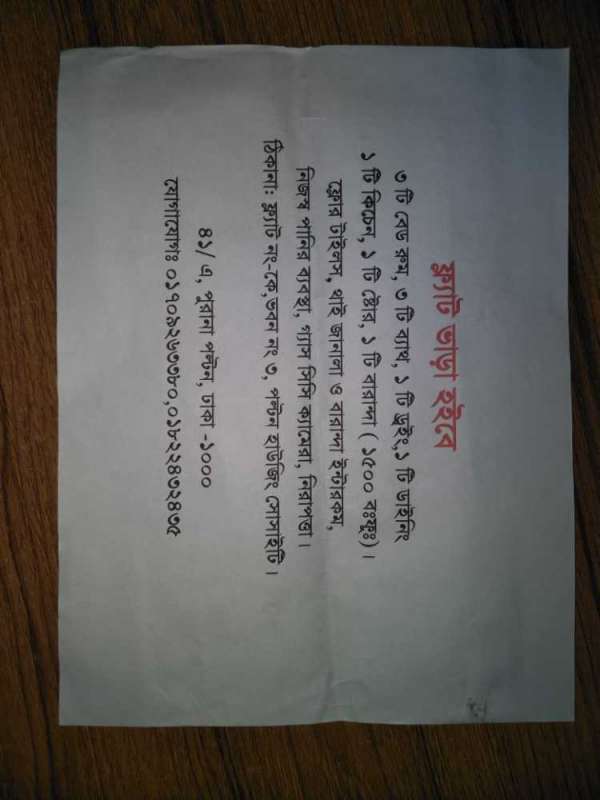 ফ্ল্যাট ভাড়া হইবে
৩ টি বেড রুম, ৩ টি ব্যাথ, ১ টি ড্রইং,১ টি ডাইনিং
১ টি কিচেন, ১ টি ষ্টোর, ১ টি বারান্দা ( ১৫০০ বঃফুঃ) ।
ফ্লোর টাইলস, থাই জানালা ও বারান্দা ইন্টারকম,
নিজস্ব পানির ব্যবস্থা, গ্যাস সিসি ক্যামেরা, নিরাপত্তা ।
ঠিকানাঃ ফ্ল্যাট নং-কে,ভবন নং ৩, পল্টন হাউজিং সোসাইটি ।
৪১/ এ, পুরানা পল্টন, ঢাকা -১০০০
যোগাযোগঃ ০১৭০৯২৬৭৩৮০,০১৮২২৪৩২৪৩৫